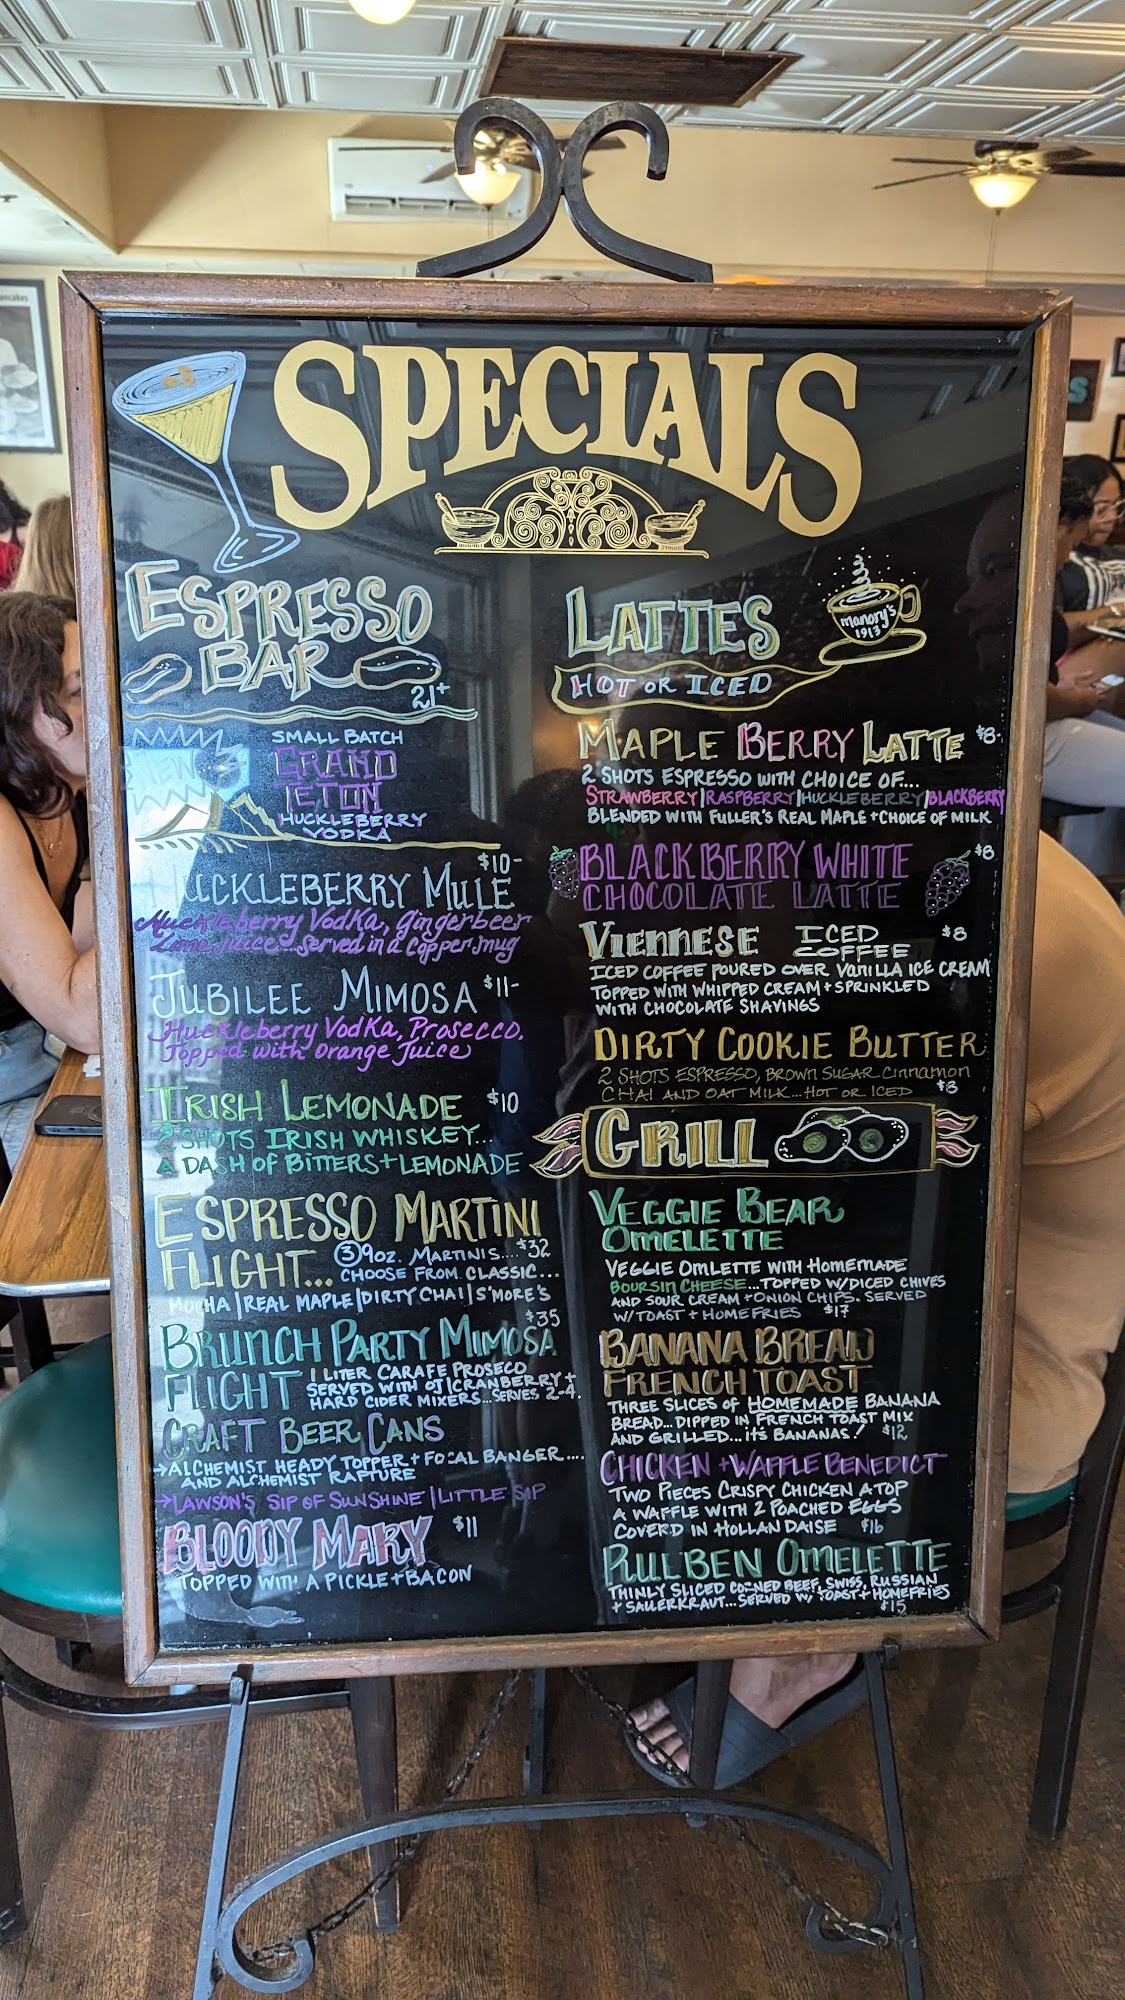 ancakes
SPECIALS
ESPRESSO
BAR
21+
NEW
SMALL BATCH
GRAND
TETON
HUCKLEBERRY
VODKA
HUCKLEBERRY MULE $10-
Huckleberry Vodka, Gingerbeer
Lime juice...served in a copper mug
JUBILEE MIMOSA $11-
Huckleberry Vodka, Prosecco,
Topped with Orange Juice
IRISH LEMONADE $10
2 SHOTS IRISH WHISKEY...
A DASH OF BITTERS + LEMONADE
ESPRESSO MARTINI
FLIGHT... ③ 9oz. MARTINIS.... $32
CHOOSE FROM CLASSIC...
MOCHA | REAL MAPLE | DIRTY CHAI | S'MORE'S
$35
BRUNCH PARTY MIMOSA
FLIGHT 1 LITER CARAFE PROSECO
SERVED WITH OJ | CRANBERRY +
HARD CIDER MIXERS... SERVES 2-4.
CRAFT BEER CANS
→ALCHEMIST HEADY TOPPER + FOCAL BANGER....
AND ALCHEMIST RAPTURE
→LAWSON'S SIP OF SUNSHINE | LITTLE SIP
BLOODY MARY $11
TOPPED WITH A PICKLE + BACON
LATTES
manory's
1913
HOT OR ICED
MAPLE BERRY LATTE $8-
2 SHOTS ESPRESSO WITH CHOICE OF....
STRAWBERRY | RASPBERRY | HUCKLEBERRY | BLACKBERRY
BLENDED WITH FULLER'S REAL MAPLE + CHOICE OF MILK
BLACKBERRY WHITE $8
CHOCOLATE LATTE
VIENNESE ICED COFFEE $8
ICED COFFEE POURED OVER VANILLA ICE CREAM
TOPPED WITH WHIPPED CREAM + SPRINKLED
WITH CHOCOLATE SHAVINGS
DIRTY COOKIE BUTTER
2 SHOTS ESPRESSO, BROWN SUGAR CINNAMON
CHAI AND OAT MILK... HOT OR ICED $8
GRILL
VEGGIE BEAR
OMELETTE
VEGGIE OMLETTE WITH HOMEMADE
BOURSIN CHEESE...TOPPED W/DICED CHIVES
AND SOUR CREAM + ONION CHIPS. SERVED
W/TOAST + HOMEFRIES $17
BANANA BREAD
FRENCH TOAST
THREE SLICES OF HOMEMADE BANANA
BREAD...DIPPED IN FRENCH TOAST MIX
AND GRILLED...it's BANANAS! $12
CHICKEN + WAFFLE BENEDICT
TWO PIECES CRISPY CHICKEN ATOP
A WAFFLE WITH 2 POACHED EGGS
COVERD IN HOLLANDAISE $16
RUEBEN OMELETTE
THINLY SLICED CORNED BEEF, SWISS, RUSSIAN
+ SAUERKRAUT...SERVED W/ TOAST + HOMEFRIES
$15